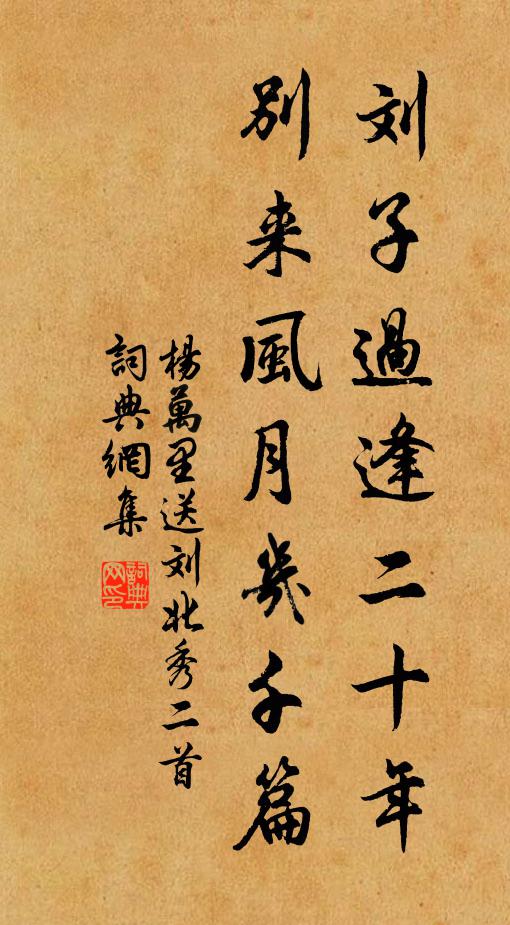 刘子過逢二十年
别来風月幾千篇
楊萬里送刘北秀二首
詞典網集
詞典网印